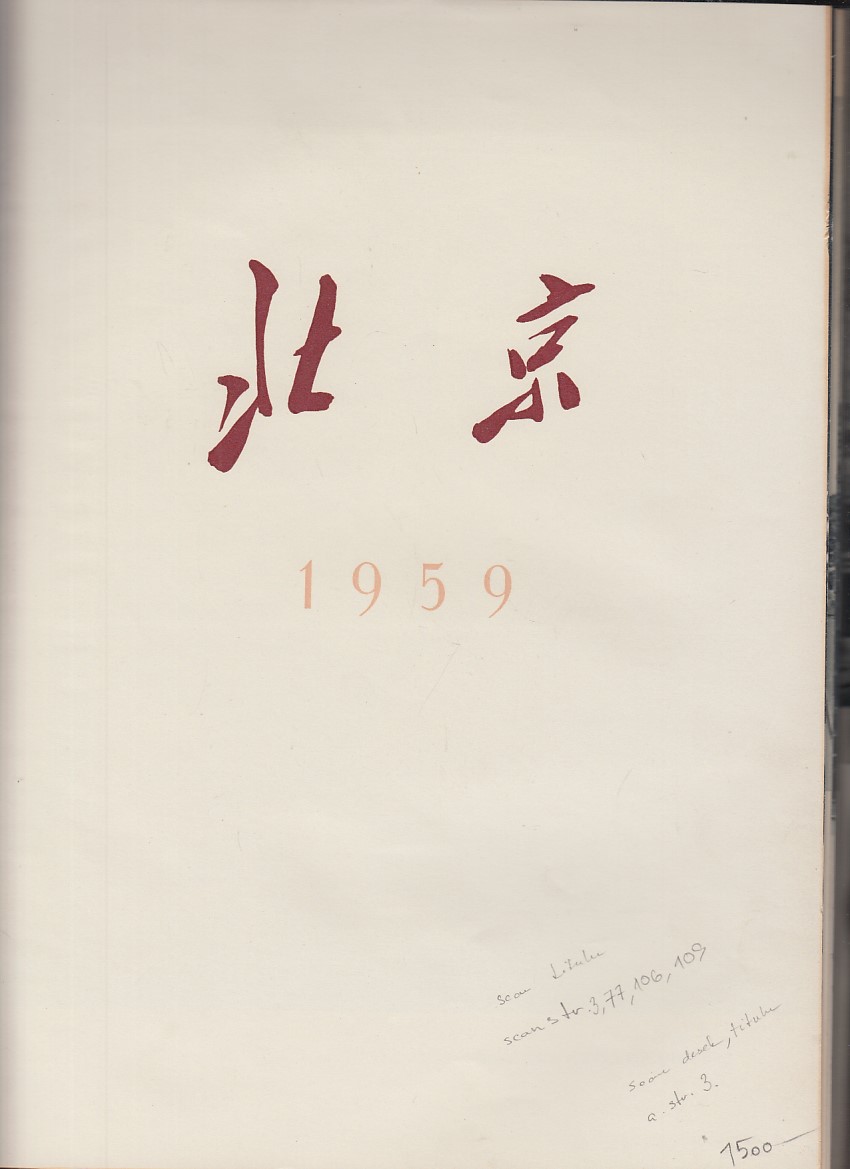 北京
1959
scan titulu
scan str. 3, 77, 106, 109
scan desek, titulu
a. str. 3.
1500